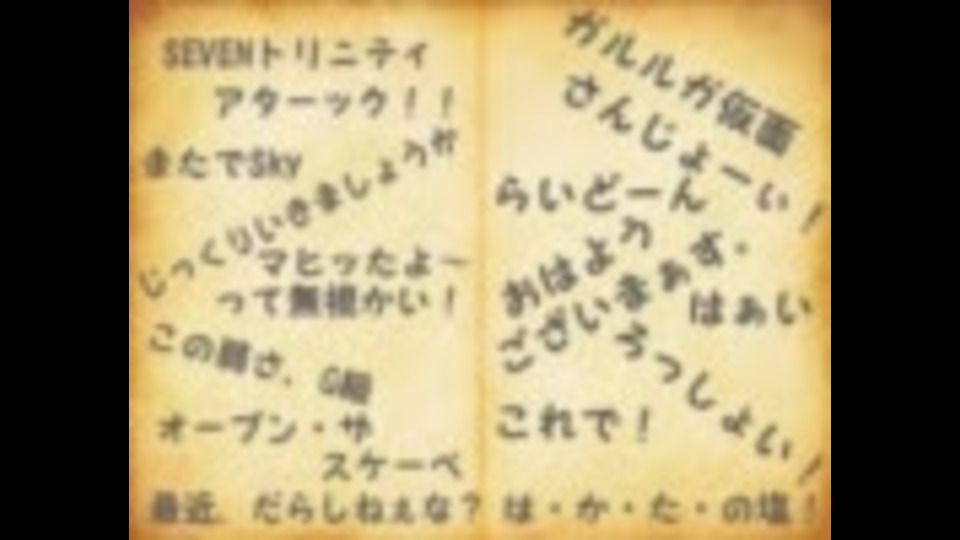 SEVENトリニティ
アターック！！
またでSky
じっくりいきましょうか
マヒッたよ～
って無視かい！
この闘さ、G級
オープン・ザ
スケーベ
最近、だらしねぇな？
ガルルガ仮面
さんじょーぃ！
らいどーん
おはよう
ございまぁす.
はぁい
ろっしょい！
これで！
は・か・た・の塩！